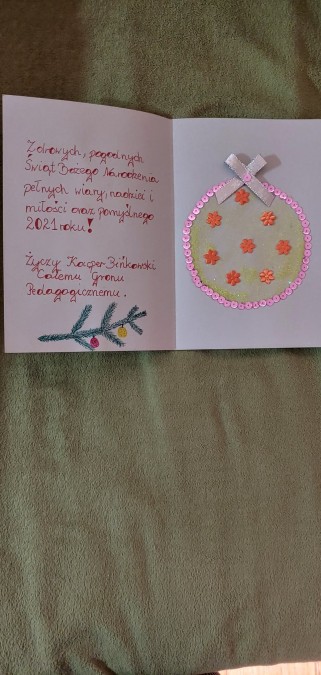 Zdrowych, pogodnych
Świąt Bożego Narodzenia
pełnych wiary, nadziei i
miłości oraz pomyślnego
2021 roku!
Życzy Kacper Bińkowski
Całemu Gronu
Pedagogicznemu.